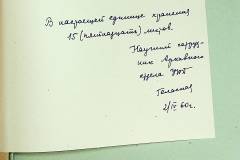 В настоящей единице хранения
15 (пятнадцать) листов.
Научный сотруд-
ник Архивного
отдела
2/IV 60г.